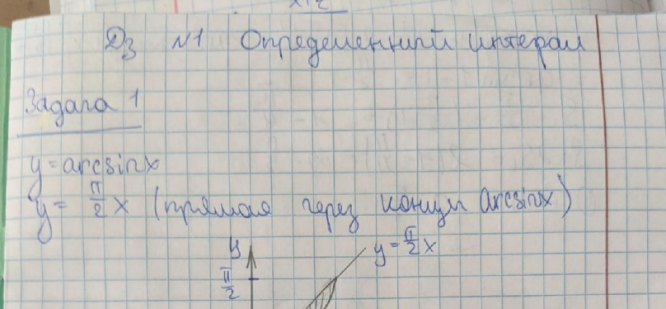 Дз №1 Определенный интеграл
Задача 1
y = arcsinx
y = π/2 x (прямая через концы arcsinx)
y = π/2 x
y
π/2